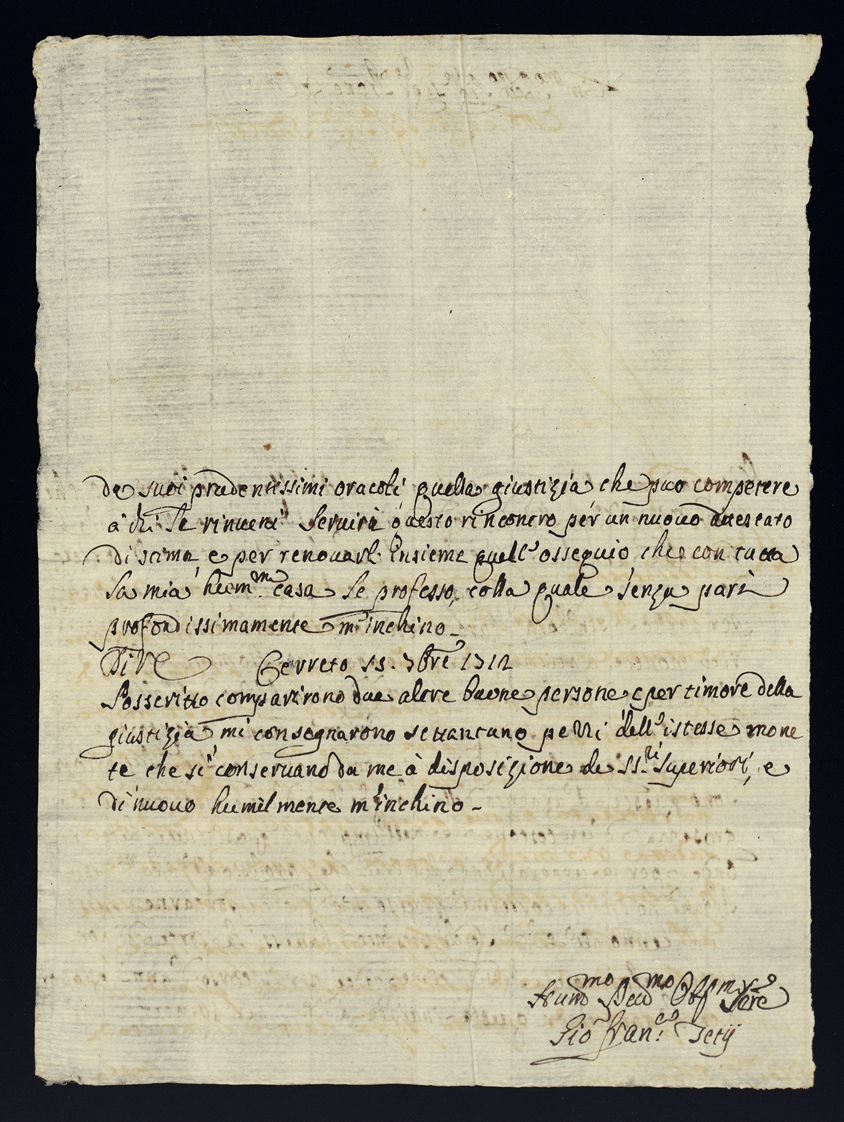 de suoi prudentissimi oracoli quella giustizia che può competere
à chi Le rinverrà Servirà questo rincontro per un nuovo attestato
di stima, e per renovarle Ensieme quell'osseguio che con tutta
La mia casa Le professo, colla quale senza pari
profondissimamente m'inchino_
Cerreto 15. 9bre 1712
Posscritto comparirono due altre buone persone e per timore della
giustizia mi consegnarono settantuno pezzi dell'istesse mone
te che si conservano da me à disposizione de SS.ri Superiori, e
di nuovo humilmente m'inchino_
Hum.mo Dev.mo Obl.mo Ser.re
Gio Fran.co Tetij